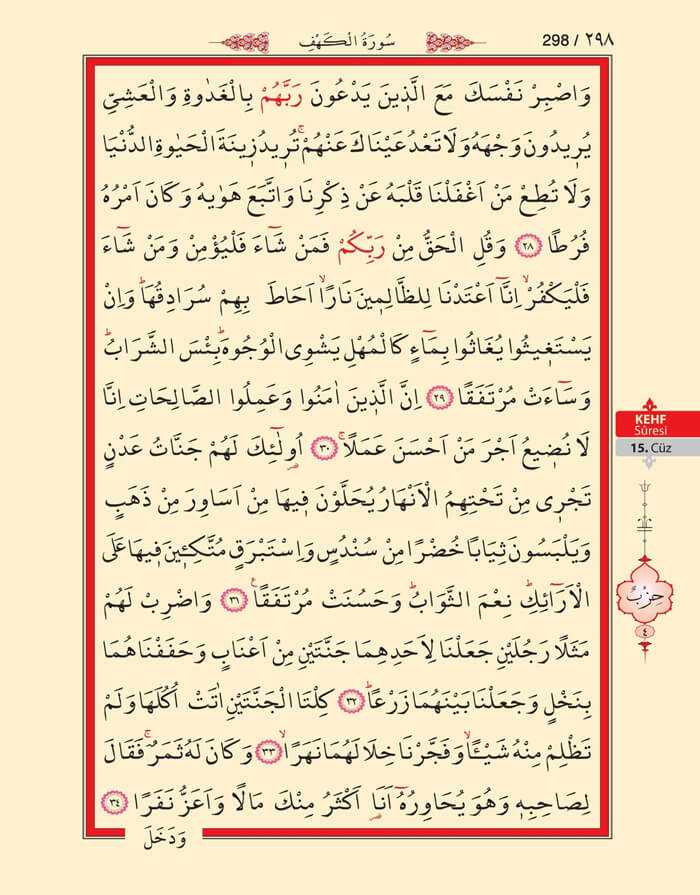 298 / ٢٩٨
سُورَةُ الْكَهْفِ
وَاصْبِرْ نَفْسَكَ مَعَ الَّذ۪ينَ يَدْعُونَ رَبَّهُمْ بِالْغَدٰوةِ وَالْعَشِيِّ
يُر۪يدُونَ وَجْهَهُ وَلَا تَعْدُ عَيْنَاكَ عَنْهُمْۚ تُر۪يدُ ز۪ينَةَ الْحَيٰوةِ الدُّنْيَا
وَلَا تُطِعْ مَنْ اَغْفَلْنَا قَلْبَهُ عَنْ ذِكْرِنَا وَاتَّبَعَ هَوٰيهُ وَكَانَ اَمْرُهُ
فُرُطًا ﴿٢٨﴾ وَقُلِ الْحَقُّ مِنْ رَبِّكُمْ فَمَنْ شَٓاءَ فَلْيُؤْمِنْ وَمَنْ شَٓاءَ
فَلْيَكْفُرْۙ اِنَّٓا اَعْتَدْنَا لِلظَّالِم۪ينَ نَارًاۙ اَحَاطَ بِهِمْ سُرَادِقُهَاۜ وَاِنْ
يَسْتَغ۪يثُوا يُغَاثُوا بِمَٓاءٍ كَالْمُهْلِ يَشْوِي الْوُجُوهَۜ بِئْسَ الشَّرَابُۜ
وَسَٓاءَتْ مُرْتَفَقًا ﴿٢٩﴾ اِنَّ الَّذ۪ينَ اٰمَنُوا وَعَمِلُوا الصَّالِحَاتِ اِنَّا
لَا نُض۪يعُ اَجْرَ مَنْ اَحْسَنَ عَمَلًاۚ ﴿٣٠﴾ اُو۬لٰٓئِكَ لَهُمْ جَنَّاتُ عَدْنٍ
تَجْر۪ي مِنْ تَحْتِهِمُ الْاَنْهَارُ يُحَلَّوْنَ ف۪يهَا مِنْ اَسَاوِرَ مِنْ ذَهَبٍ
وَيَلْبَسُونَ ثِيَابًا خُضْرًا مِنْ سُنْدُسٍ وَاِسْتَبْرَقٍ مُتَّكِـ۪ٔينَ ف۪يهَا عَلَى
الْاَرَٓائِكِۜ نِعْمَ الثَّوَابُۜ وَحَسُنَتْ مُرْتَفَقًا۟ ﴿٣١﴾ وَاضْرِبْ لَهُمْ
مَثَلًا رَجُلَيْنِ جَعَلْنَا لِاَحَدِهِمَا جَنَّتَيْنِ مِنْ اَعْنَابٍ وَحَفَفْنَاهُمَا
بِنَخْلٍ وَجَعَلْنَا بَيْنَهُمَا زَرْعًاۜ ﴿٣٢﴾ كِلْتَا الْجَنَّتَيْنِ اٰتَتْ اُكُلَهَا وَلَمْ
تَظْلِمْ مِنْهُ شَيْـًٔاۙ وَفَجَّرْنَا خِلَالَهُمَا نَهَرًاۙ ﴿٣٣﴾ وَكَانَ لَهُ ثَمَرٌۚ فَقَالَ
لِصَاحِبِه۪ وَهُوَ يُحَاوِرُهُٓ اَنَا۬ اَكْثَرُ مِنْكَ مَالًا وَاَعَزُّ نَفَرًا ﴿٣٤﴾
وَدَخَلَ
KEHF
Sûresi
15. Cüz
حِزْبٌ
٤